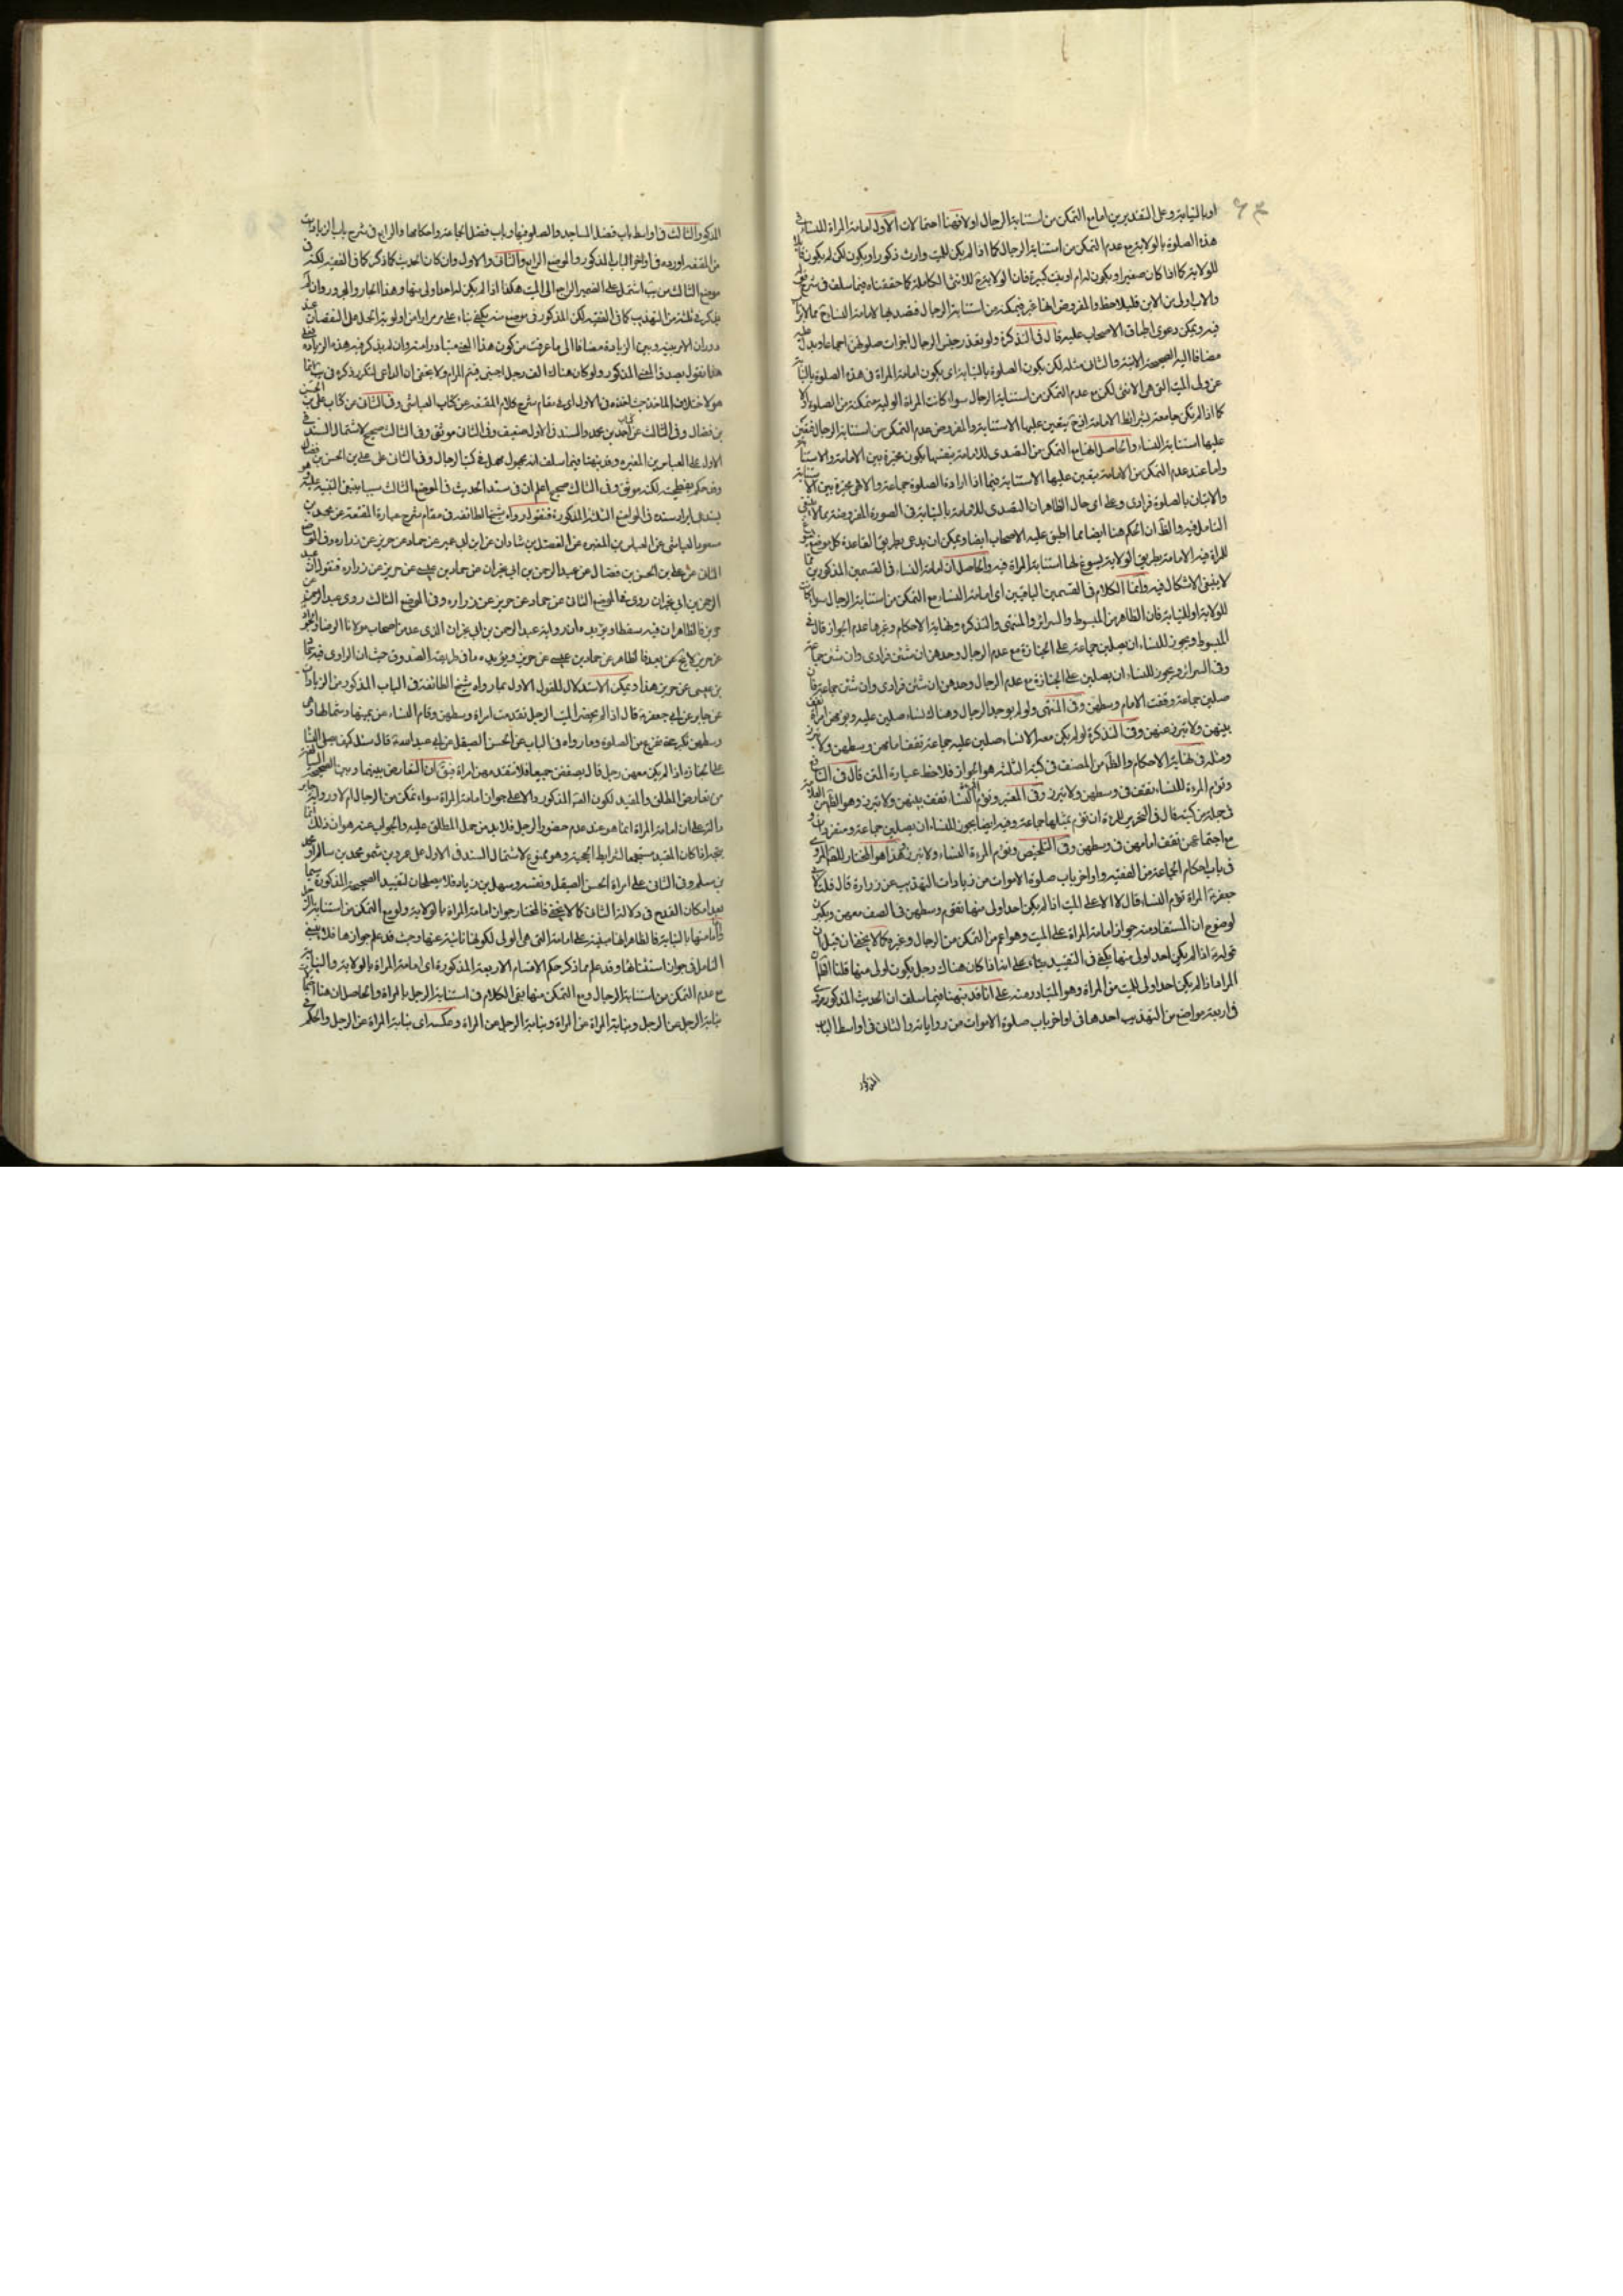 او بالنيابة وعلى التقديرين اما مع التمكن من استنابة الرجال او لا فهنا احتمالات الاول امامة المراة للنساء في
هذه الصلوة بالولاية مع عدم التمكن من استنابة الرجال كما اذا لم يكن للميت وارث ذكور او يكون لكن لم يكون قابلا
للولاية كما اذا كان صغيرا او يكون له ام او بنت كبيرة فان الولاية ح للانثى الكاملة كما حققناه فيما سلف في شرح
والاب اولى من الابن فليلاحظ والمفروض انها غير متمكنة من استنابة الرجال فتصديها لامامة النساء ح مما لا ارتياب
فيه ويمكن دعوى اطباق الاصحاب عليه قال في التذكرة ولو تعذر حضور الرجال اجزأت صلوتهن اجماعا
مضافا اليه الصحيحة الاتية والثاني مثله لكن يكون الصلوة بالنيابة اي يكون امامة المراة في هذه الصلوة بالنيابة
عن ولى الميت التي هي الانثى لكن مع عدم التمكن من استنابة الرجال سواء كانت المراة الولية متمكنة من الصلوة او لا
كما اذا لم تكن جامعة لشرائط الامامة اذ ح يتعين عليها الاستنابة والمفروض عدم التمكن من استنابة الرجال فتعين
عليها استنابة النساء والحاصل انها مع التمكن من التصدى للامامة بنفسها يكون مخيرة بين الامامة والاستنابة
واما عند عدم التمكن من الامامة يتعين عليها الاستنابة فيما اذا ارادت الصلوة جماعة والا هى مخيرة بين الاستنابة
والاتيان بالصلوة فرادى وعلى اى حال الظاهر ان التصدى للامامة بالنيابة في الصورة المفروضة مما لا ينبغى
التامل فيه والظ ان الحكم هنا ايضا مما اطبق عليه الاصحاب ايضا ويمكن ان يدعى بطريق القاعدة كل موضع يسوغ
للمراة فيه الامامة بطريق الولاية يسوغ لها استنابة المراة فيه والحاصل ان امامة النساء في القسمين المذكورين مما
لا ينبغى الاشكال فيه وانما الكلام في القسمين الباقيين اى امامة النساء مع التمكن من استنابة الرجال سواء كانت
للولاية او للنيابة فان الظاهر من المبسوط والسرائر والمنتهى والتذكرة ونهاية الاحكام وغيرها عدم الجواز قال في
المبسوط ويجوز للنساء ان يصلين جماعة على الجنازة مع عدم الرجال وحدهن ان شئن فرادى وان شئن جماعة
وفي السرائر ويجوز للنساء ان يصلين على الجنازة مع عدم الرجال وحدهن ان شئن فرادى وان شئن جماعة فان
صلين جماعة وقفت الامام وسطهن وفي المنتهى ولو لم يوجد الرجال وهناك نساء صلين عليه ويؤمهن امراة تقف
بينهن ولا تبرز عنهن وفي التذكرة لو لم يكن معه الا نساء صلين عليه جماعة تقف امامهن وسطهن ولا تبرز
ومثله في نهاية الاحكام والظ من المصنف في كتبه الثلثة هو الجواز فلاحظ عبارة المتن قال في النافع
وتؤم المرءة للنساء تقف في وسطهن ولا تبرز وفي المعتبر وتؤم النساء تقف بينهن ولا تبرز وهو الظ من العلامة
في جملة من كتبه قال في التحرير للمرءة ان تؤم بمثلها جماعة وفيه ايضا يجوز للنساء ان يصلين جماعة ومنفردات
مع اجتماعهن تقف امامهن في وسطهن وفي التلخيص وتؤم المرءة النساء ولا تبرز وهذا هو المختار للصحيح المروى
في باب احكام الجماعة من الفقيه واواخر باب صلوة الاموات من زيادات التهذيب عن زرارة قال قلت لابى
جعفر ع المراة تؤم النساء قال لا الا على الميت اذا لم يكن احد اولى منها تقوم وسطهن في الصف معهن وتكبر
لوضوح ان المستفاد منه جواز امامة المراة على الميت وهو اعم من التمكن من الرجال وغيره كما لا يخفى فان قيل ان
قوله ع اذا لم يكن احد اولى منها يكفى في التقييد بناء على انه اذا كان هناك رجل يكون اولى منها قلنا الظ ان
المراد اذا لم يكن احد اولى للميت من المراة وهو المتبادر منه على انا قد نبهنا فيما سلف ان الحديث المذكور مروى
في اربعة مواضع من التهذيب احدها في اواخر باب صلوة الاموات من رواياته والثاني في اواسط الباب
المذكور
المذكور والثالث في اواسط باب فضل المساجد والصلوة فيها وباب فضل الجماعة واحكامها والرابع في شرح باب الزيادات
من المقنعة اورده في اواخر الباب المذكور والموضع الرابع والثاني والاول وان كان الحديث كما ذكر كما في الفقيه لكنه في
موضع الثالث من يب اشتمل على الضمير الراجع الى الميت هكذا اذا لم يكن له احد اولى منها وهذا الجار والمجرور وان لم
يذكر في ثلثة من التهذيب كما في الفقيه لكن المذكور في موضع منه يكفى بناء على مر مرارا من اولوية الحمل على النقصان عند
دوران الامر بينه وبين الزيادة مضافا الى ما عرفت من كون هذا المعنى متبادرا منه وان لم يذكر فيه هذه الزيادة فعلى
هذا نقول يصدق المعنى المذكور ولو كان هناك الف رجل اجنبى فيتم المرام ولا يخفى ان الداعى لتكرر ذكره في يب انما
هو لاختلاف الماخذ حيث اخذه في الاول اى في مقام شرح كلام المقنعة عن كتاب العياشى وفي الثاني من كتاب على بن الحسن
بن فضال وفي الثالث عن كتاب احمد بن محمد والسند في الاول ضعيف وفي الثاني موثق وفي الثالث صحيح لاشتمال السند في
الاول على العباس بن المغيرة وقد نبهنا فيما سلف انه مجهول مهمل في كتب الرجال وفي الثاني على على بن الحسن بن فضال
وقد حكم بفطحيته لكنه موثق وفي الثالث صحيح اعلم ان في سند الحديث في الموضع الثالث سببا ينبغى التنبيه عليه هو
يستدعى ايراد سنده في المواضع الثلثة المذكورة فنقول رواه شيخ الطائفة في مقام شرح عبارة المقنعة عن محمد بن
مسعود العياشى عن العباس بن المغيرة عن الفضل بن شاذان عن ابن ابى عمير عن حماد عن حريز عن زرارة وفي الموضع
الثاني عن على بن الحسن بن فضال عن عبد الرحمن بن ابى نجران عن حماد بن عيسى عن حريز عن زرارة فنقول ان عبد
الرحمن بن ابى نجران روى في الموضع الثاني عن حماد عن حريز عن زرارة وفي الموضع الثالث روى عبد الرحمن عن
حريز فالظاهر ان فيه سقطا ويؤيده ان رواية عبد الرحمن بن ابى نجران الذى عد من اصحاب مولانا الرضا والجواد
عن حريز لا يخ عن بعد فالظاهر عن حماد بن عيسى عن حريز ويؤيده ما في طريقة الصدوق حيث ان الراوى فيه حماد
بن عيسى عن حريز هذا ويمكن الاستدلال للقول الاول بما رواه شيخ الطائفة في الباب المذكور من الزيادات
عن جابر عن ابى جعفر ع قال اذا لم يحضر الميت الرجل تقدمت امراة وسطهن وقام النساء عن يمينها وشمالها وهى
وسطهن تكبر حتى تفرغ من الصلوة وما رواه في الباب عن الحسن الصيقل عن ابى عبد الله ع قال سئل كيف يصلى النساء
على الجنائز اذا لم يكن معهن رجل قال يصففن جميعا فلا تتقدمهن امراة فيق ان التعارض بينهما وبين الصحيحة السالفة
من تعارض المطلق والمقيد لكون الصحيح المذكور دالا على جواز امامة المراة سواء تمكن من الرجال ام لا ورواية جابر
دالة على ان امامة المراة انما هو عند عدم حضور الرجل فلا بد من حمل المطلق عليه والجواب عنه هو ان ذلك انما
يتجه اذا كان المقيد مستجمعا لشرايط الحجية وهو ممنوع لاشتمال السند في الاول على عمرو بن شمر ومحمد بن سالم او محمد
بن مسلم وفي الثاني على امراة الحسن الصيقل ونفسه وسهل بن زياد فلا يصلحان لتقييد الصحيحة المذكورة سيما
بعد امكان القدح في دلالة الثاني كما لا يخفى فالمختار جواز امامة المراة بالولاية ولو مع التمكن من استنابة الرجل
واما امامتها بالنيابة فالظاهر انها مبنية على امامة التى هى الولى لكونها نائبة عنها وحيث قد علم جوازها فلا ينبغى
التامل في جواز استنابتها وقد علم مما ذكر حكم الاقسام الاربعة المذكورة اى امامة المراة بالولاية والنيابة
مع عدم التمكن من استنابة الرجال ومع التمكن منها بقى الكلام في استنابة الرجل بالمراة والحاصل ان هنا اقسام
نيابة الرجل عن الرجل ونيابة المراة عن المراة ونيابة الرجل عن المراة وعكسه اى نيابة المراة عن الرجل والحكم في